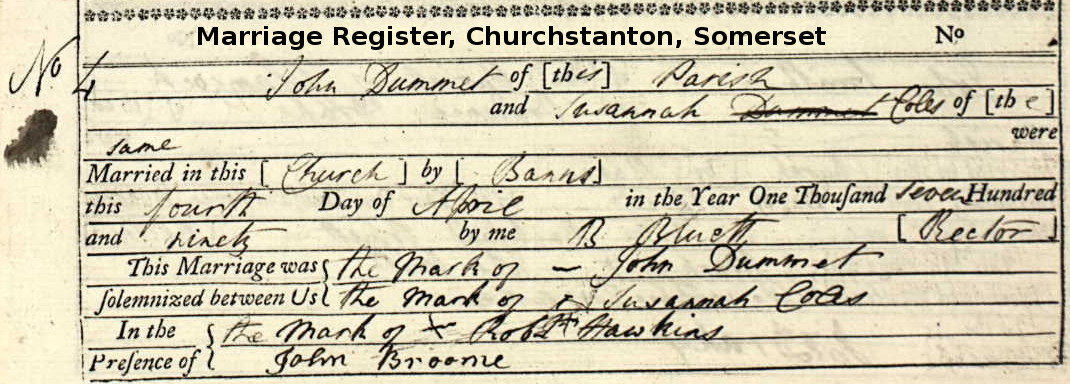 Marriage Register, Churchstanton, Somerset
No
No 4 John Dummet of [this] Parish
and Susannah Dummet Coles of [the]
same were
Married in this [Church] by [Banns]
this fourth Day of April in the Year One Thouſand Seven Hundred
and ninety by me B Bluett [Rector]
This Marriage was { the Mark of — John Dummet
ſolemnized between Us { the Mark of Susannah Coles
In the { the Mark of x Robt Hawkins
Preſence of { John Broome